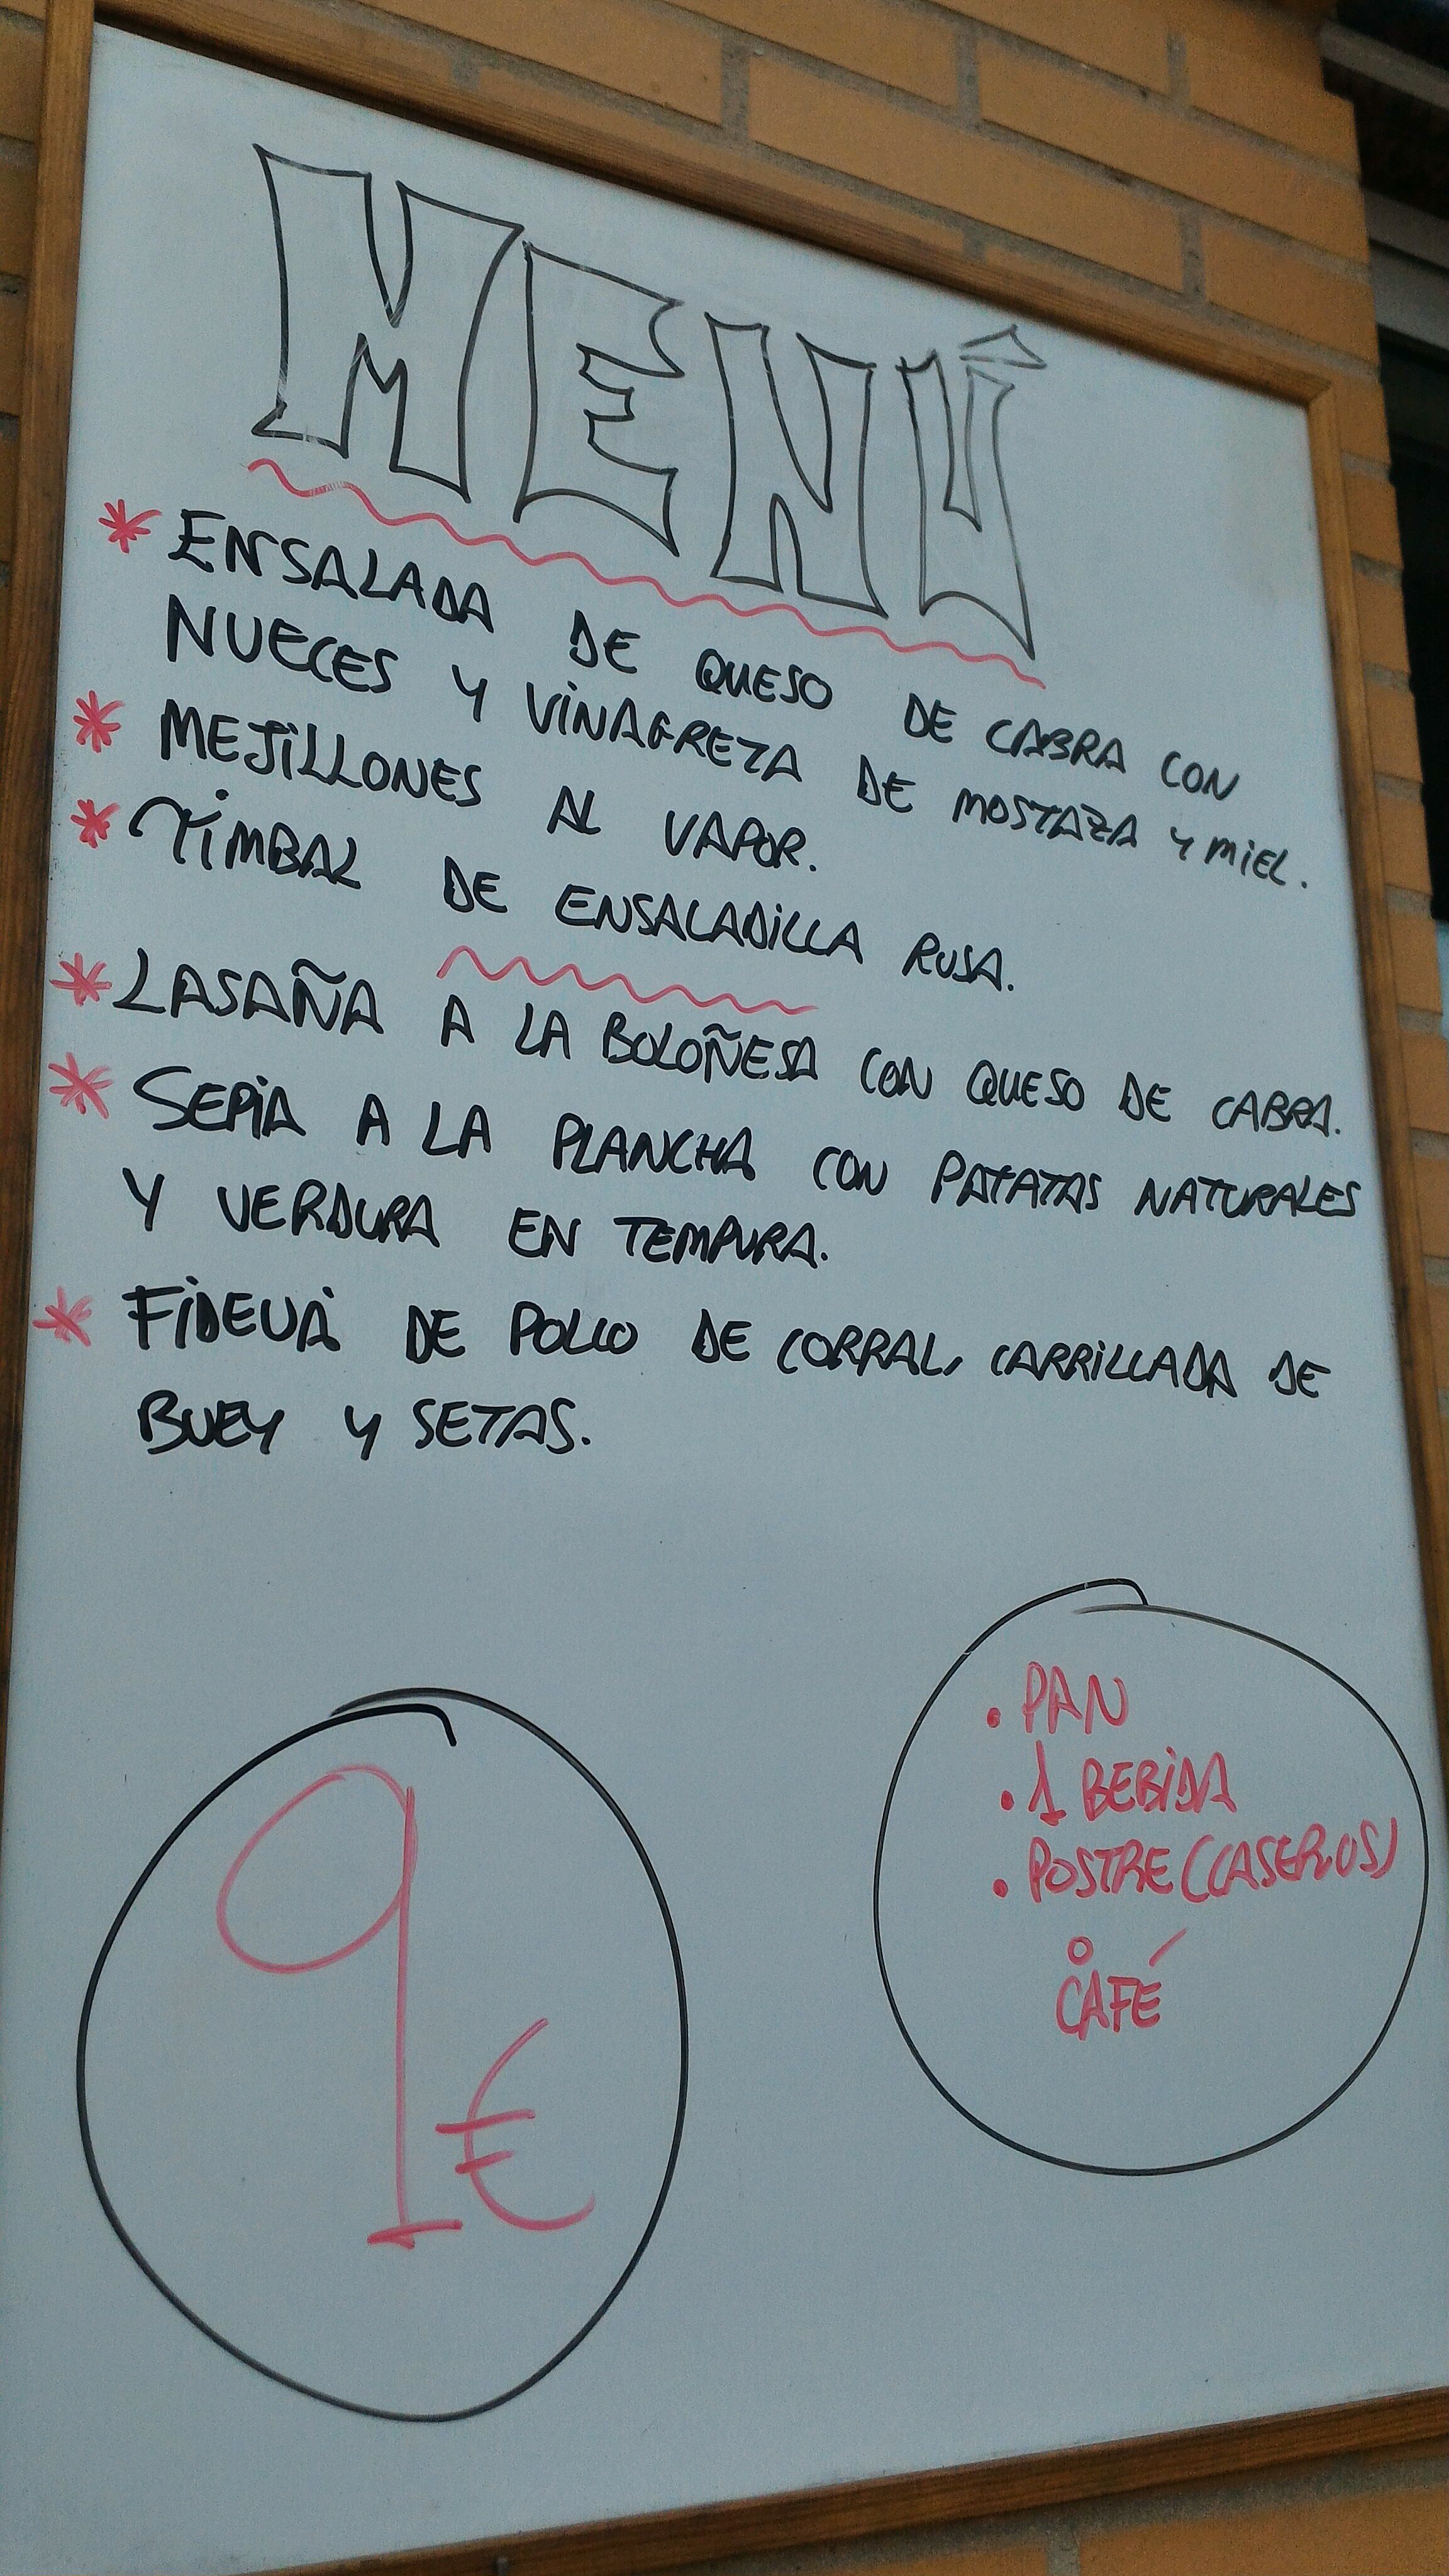 MENÚ
* ENSALADA DE QUESO DE CABRA CON
NUECES Y VINAGRETA DE MOSTAZA Y MIEL.
* MEJILLONES AL VAPOR.
* TIMBAL DE ENSALADILLA RUSA.
* LASAÑA A LA BOLOÑESA CON QUESO DE CABRA.
* SEPIA A LA PLANCHA CON PATATAS NATURALES
Y VERDURA EN TEMPURA.
* FIDEUÁ DE POLLO DE CORRAL, CARRILLADA DE
BUEY Y SETAS.
• PAN
• 1 BEBIDA
• POSTRE (CASEROS)
O
CAFÉ
9 €